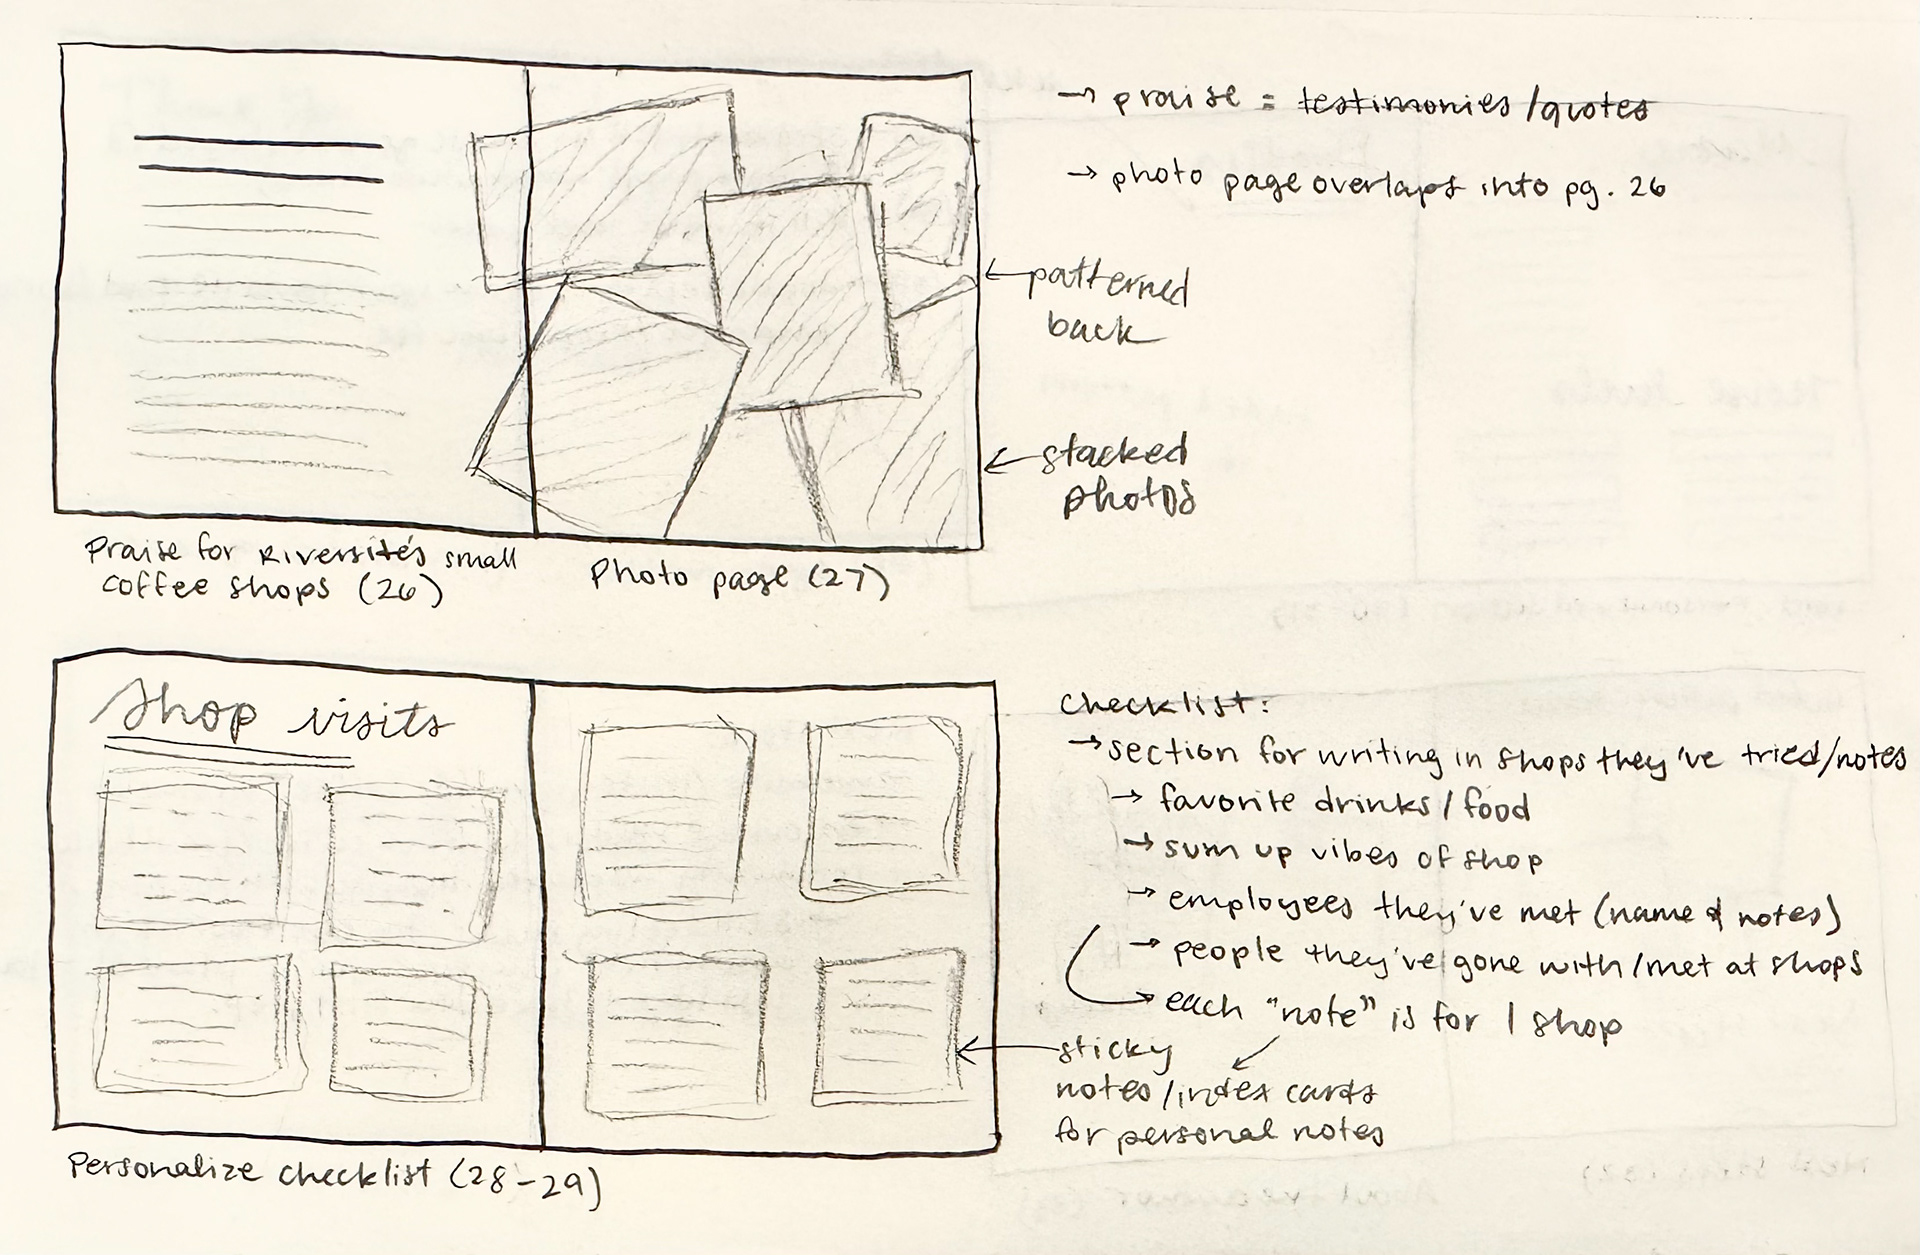 → praise = testimonies/quotes
→ photo page overlaps into pg. 26
← patterned
back
← stacked
photos
Praise for Riverside's small
coffee shops (26)
Photo page (27)
Shop visits
Checklist:
→ section for writing in shops they've tried/notes
→ favorite drinks/food
→ sum up vibes of shop
→ employees they've met (name & notes)
→ people they've gone with/met at shops
→ each "note" is for 1 shop
← sticky
notes/index cards
for personal notes
Personalize checklist (28-29)